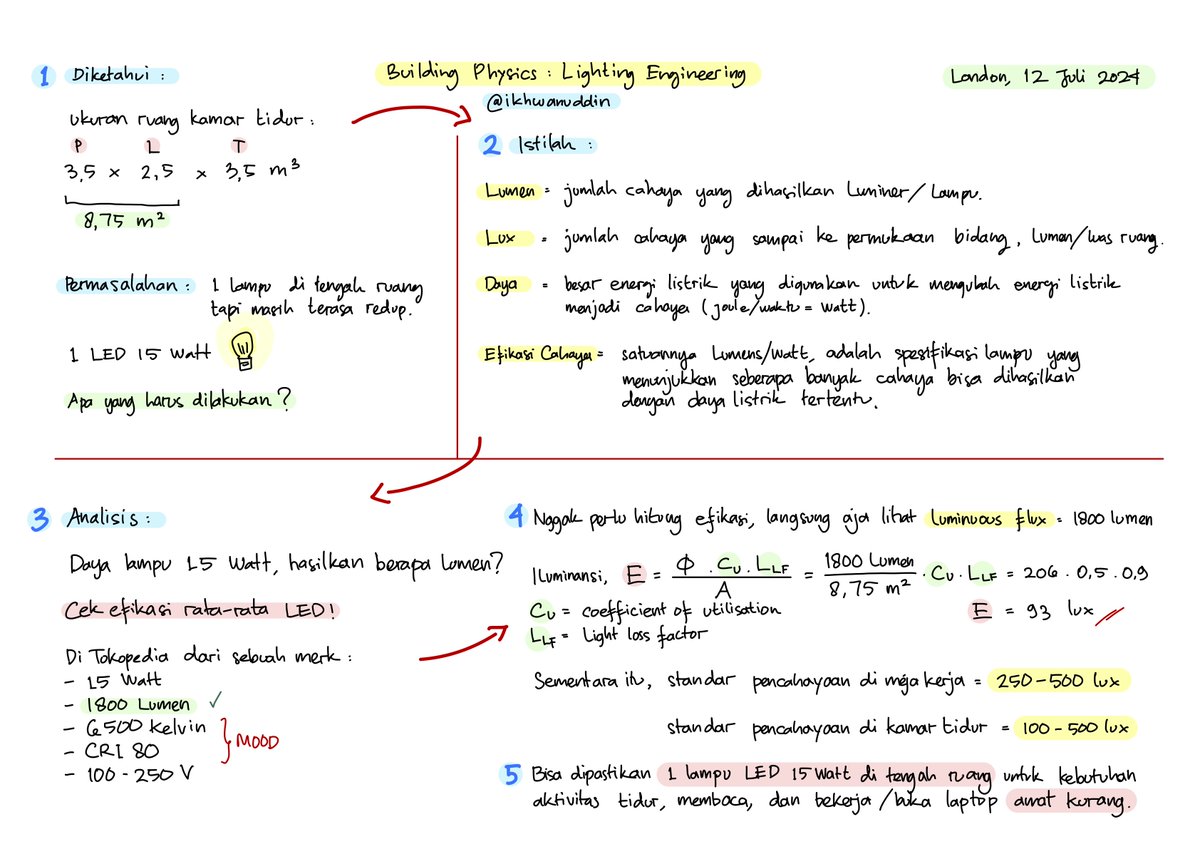 Building Physics : Lighting Engineering
@ikhwanuddin
London, 12 Juli 2024
1 Diketahui :
ukuran ruang kamar tidur :
P L T
3,5 x 2,5 x 3,5 m³
8,75 m²
Permasalahan : 1 lampu di tengah ruang
tapi masih terasa redup.
1 LED 15 Watt
Apa yang harus dilakukan ?
2 Istilah :
Lumen = jumlah cahaya yang dihasilkan Luminer / Lampu.
Lux = jumlah cahaya yang sampai ke permukaan bidang, lumen/luas ruang.
Daya = besar energi listrik yang digunakan untuk mengubah energi listrik
menjadi cahaya (joule/waktu = watt).
Efikasi Cahaya = satuannya Lumens/watt, adalah spesifikasi lampu yang
menunjukkan seberapa banyak cahaya bisa dihasilkan
dengan daya listrik tertentu.
3 Analisis :
Daya lampu 15 Watt, hasilkan berapa lumen?
Cek efikasi rata-rata LED!
Di Tokopedia dari sebuah merk :
- 15 Watt
- 1800 Lumen ✓
- 6500 Kelvin
- CRI 80
MOOD
- 100 - 250 V
4 Nggak perlu hitung efikasi, langsung aja lihat luminuous flux = 1800 lumen
Iluminansi, E = Φ . CU . LLF / A = 1800 Lumen / 8,75 m² . CU . LLF = 206 . 0,5 . 0,9
E = 93 lux
CU = coefficient of utilisation
LLF = Light loss factor
Sementara itu, standar pencahayaan di meja kerja = 250 - 500 lux
standar pencahayaan di kamar tidur = 100 - 500 lux
5 Bisa dipastikan 1 lampu LED 15 Watt di tengah ruang untuk kebutuhan
aktivitas tidur, membaca, dan bekerja / buka laptop amat kurang.